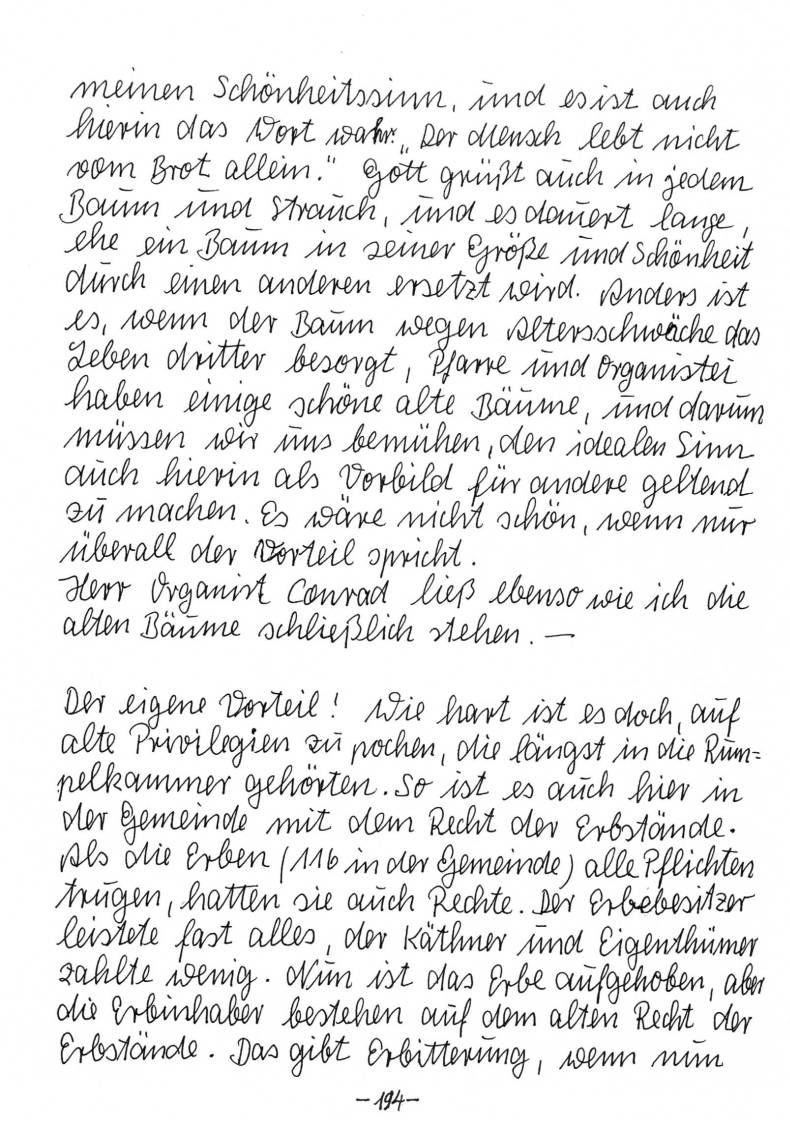 meinen Schönheitssinn, und es ist auch
hierin das Wort wahr: „Der Mensch lebt nicht
vom Brot allein." Gott grüßt auch in jedem
Baum und Strauch, und es dauert lange,
ehe ein Baum in seiner Größe und Schönheit
durch einen anderen ersetzt wird. Anders ist
es, wenn der Baum wegen Altersschwäche das
Leben dritter besorgt, Pfarre und Organistei
haben einige schöne alte Bäume, und darum
müssen wir uns bemühen, den idealen Sinn
auch hierin als Vorbild für andere geltend
zu machen. Es wäre nicht schön, wenn nur
überall der Vorteil spricht.
Herr Organist Conrad ließ ebenso wie ich die
alten Bäume schließlich stehen. —
Der eigene Vorteil! Wie hart ist es doch, auf
alte Privilegien zu pochen, die längst in die Rum=
pelkammer gehörten. So ist es auch hier in
der Gemeinde mit dem Recht der Erbstände.
Als die Erben (116 in der Gemeinde) alle Pflichten
trugen, hatten sie auch Rechte. Der Erbebesitzer
leistete fast alles, der Käthner und Eigenthümer
zahlte wenig. Nun ist das Erbe aufgehoben, aber
die Erbinhaber bestehen auf dem alten Recht der
Erbstände. Das gibt Erbitterung, wenn nun
-194-